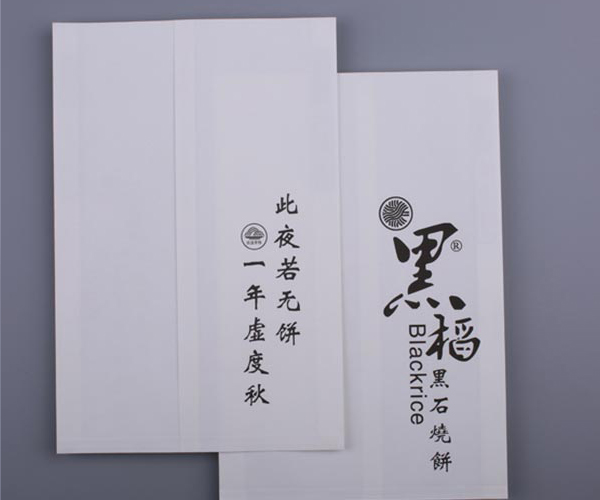 此夜若无饼
一年虚度秋
黑稻®
Blackrice
黑石燒餅